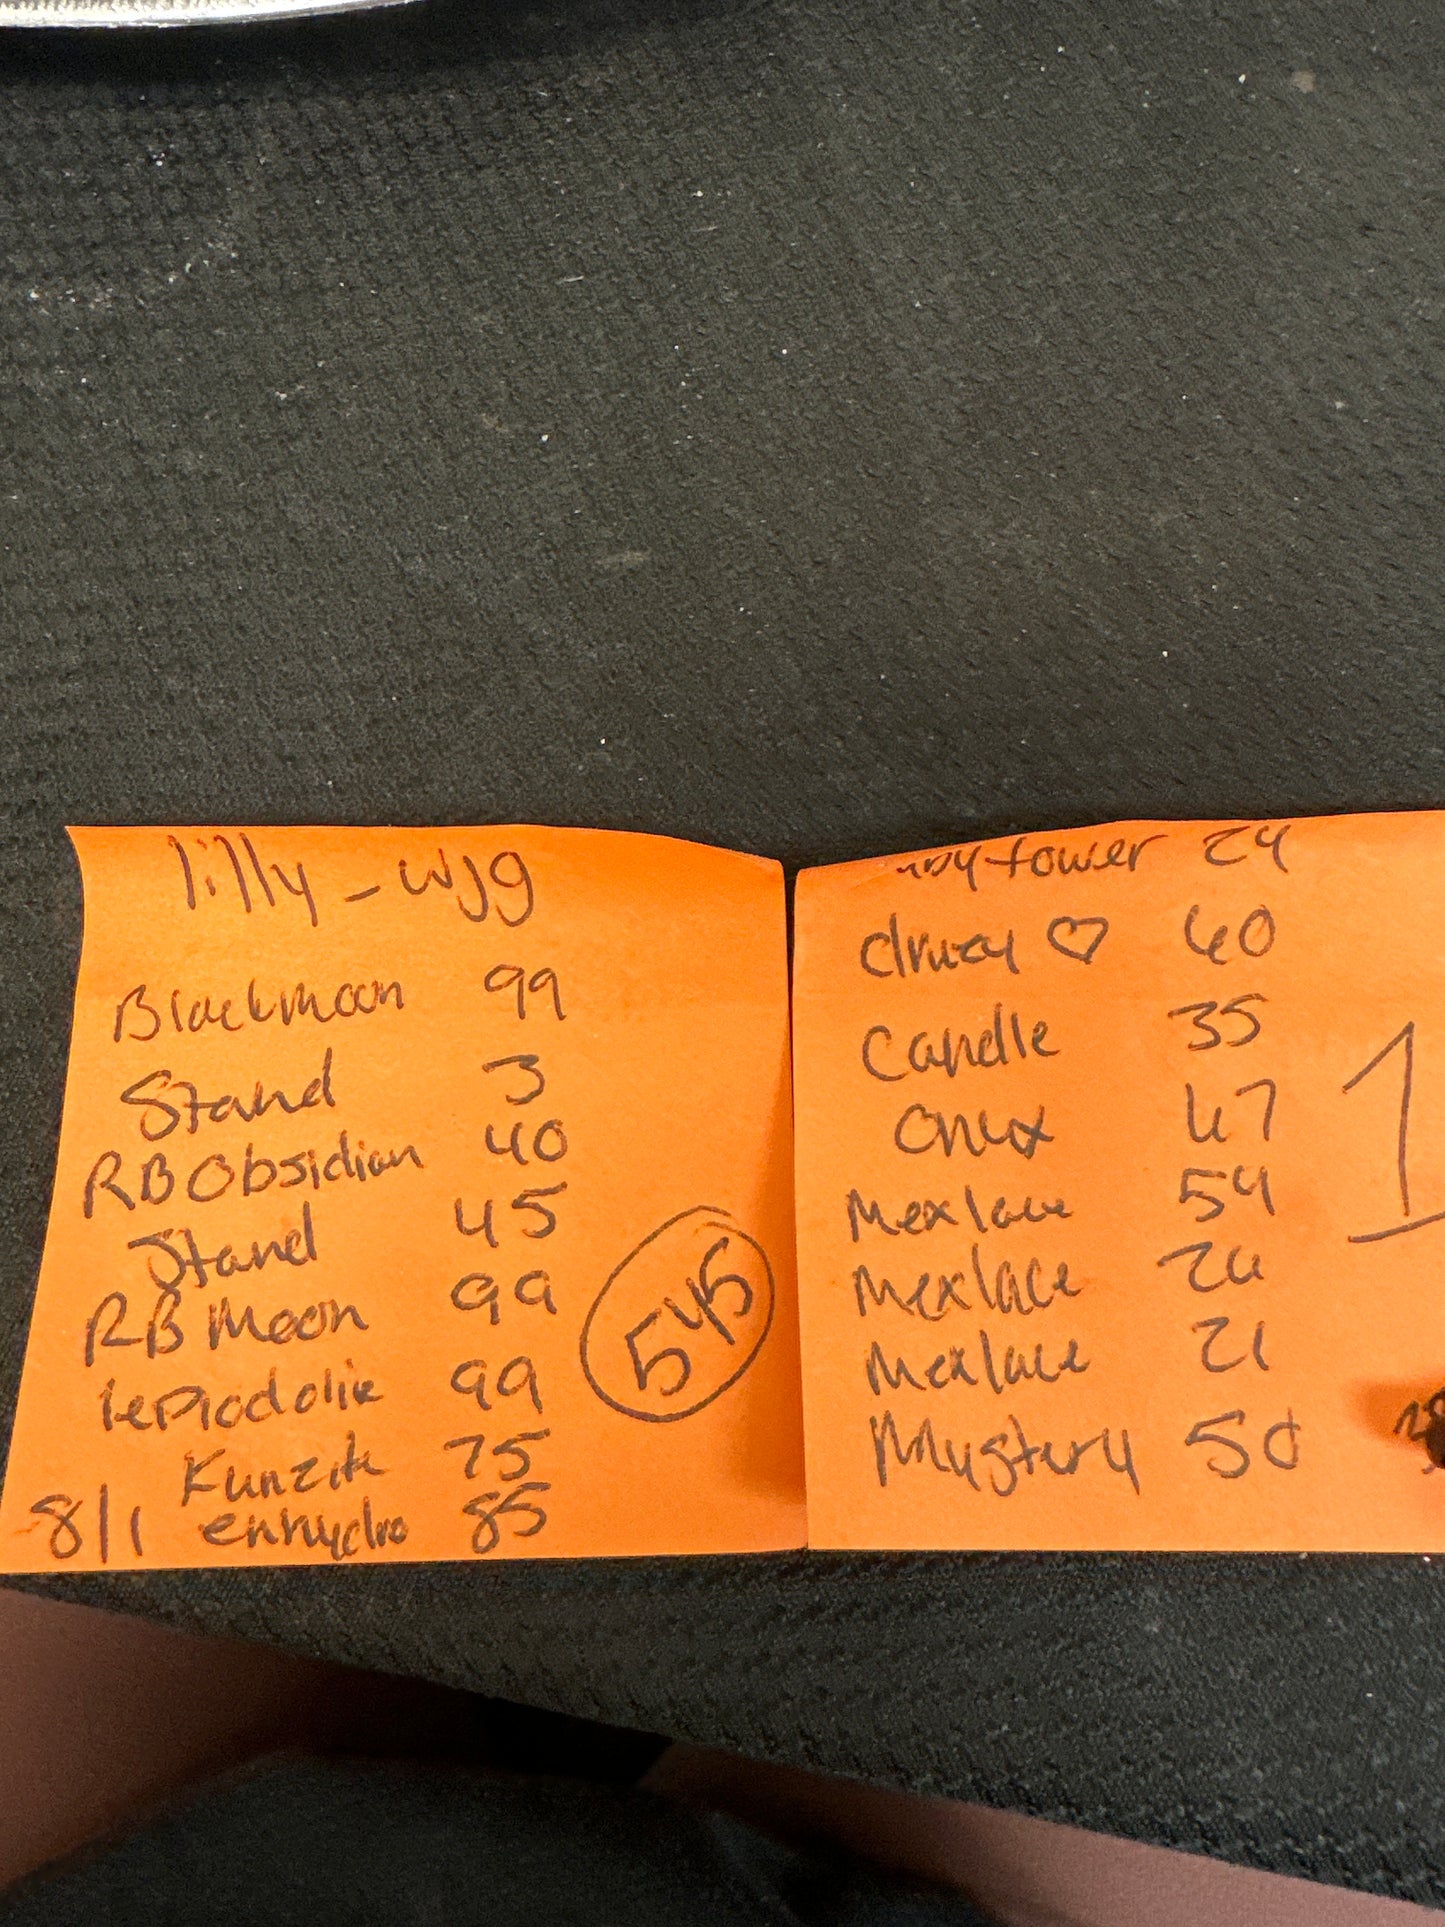 lilly_wjg
Blackmoon 99
Stand 3
RB Obsidian 40
Stand 45
RB Moon 99
lepiodolite 99
Kunzite 75
8/1 enhydro 85
545
tower 24
druzy ♡ 60
Candle 35
Onyx 47
Mexlace 54
Mexlace
Mexlace 21
Mystery 50
1